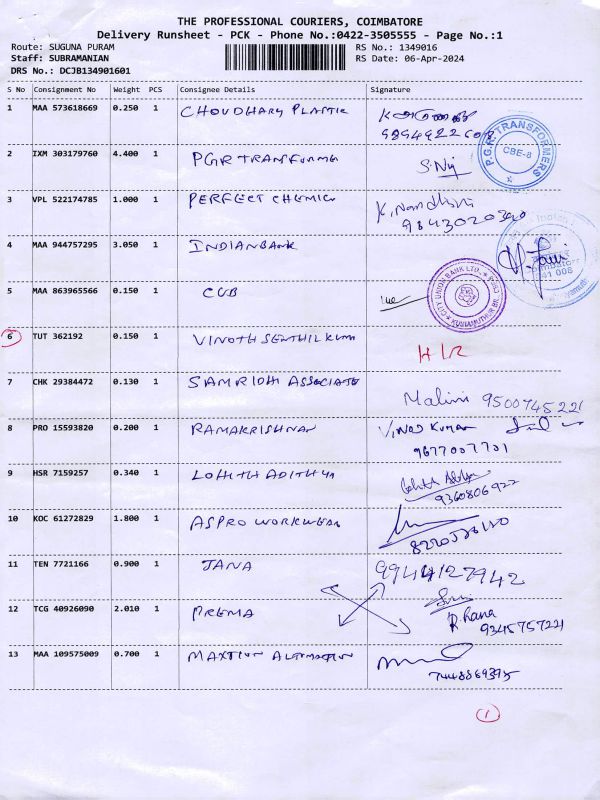 THE PROFESSIONAL COURIERS, COIMBATORE
Delivery Runsheet - PCK - Phone No.:0422-3505555 - Page No.:1
Route: SUGUNA PURAM
Staff: SUBRAMANIAN
DRS No.: DCJB134901601
RS No.: 1349016
RS Date: 06-Apr-2024
S No Consignment No Weight PCS Consignee Details Signature
1 MAA 573618669 0.250 1 CHOUDHARY PLASTIC
2 IXM 303179760 4.400 1 PGR TRANSFORMA
P.G.R. TRANSFORMERS
CBE-8
3 VPL 522174785 1.000 1 PERFECT CHEMIC K. Nandhini
9843020340
4 MAA 944757295 3.050 1 INDIANBANK
641 008
5 MAA 863965566 0.150 1 CUB
CITY UNION BANK LTD.
KUNIAMUTHUR BR.
6 TUT 362192 0.150 1 VINOTH SENTHILKUM H/R
7 CHK 29384472 0.130 1 SAMRIDHI ASSOCIATE Malini 9500745221
8 PRO 15593820 0.200 1 RAMAKRISHNAN Vinod Kumar
9677007701
9 HSR 7159257 0.340 1 LOHITH ADITHYA
9360806922
10 KOC 61272829 1.800 1 ASPRO WORKWEAR
11 TEN 7721166 0.900 1 JANA 9944127942
12 TCG 40926090 2.010 1 PREMA R. Rana
9345757221
13 MAA 109575009 0.700 1 MAXTION AUTOMATION
7448869395
1